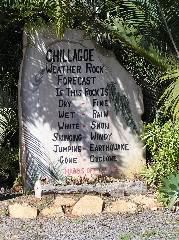 CHILLAGOE
WEATHER ROCK
FORECAST
IF THIS ROCK IS
DRY - FINE
WET - RAIN
WHITE - SNOW
SWINGING - WINDY
JUMPING - EARTHQUAKE
GONE - CYCLONE